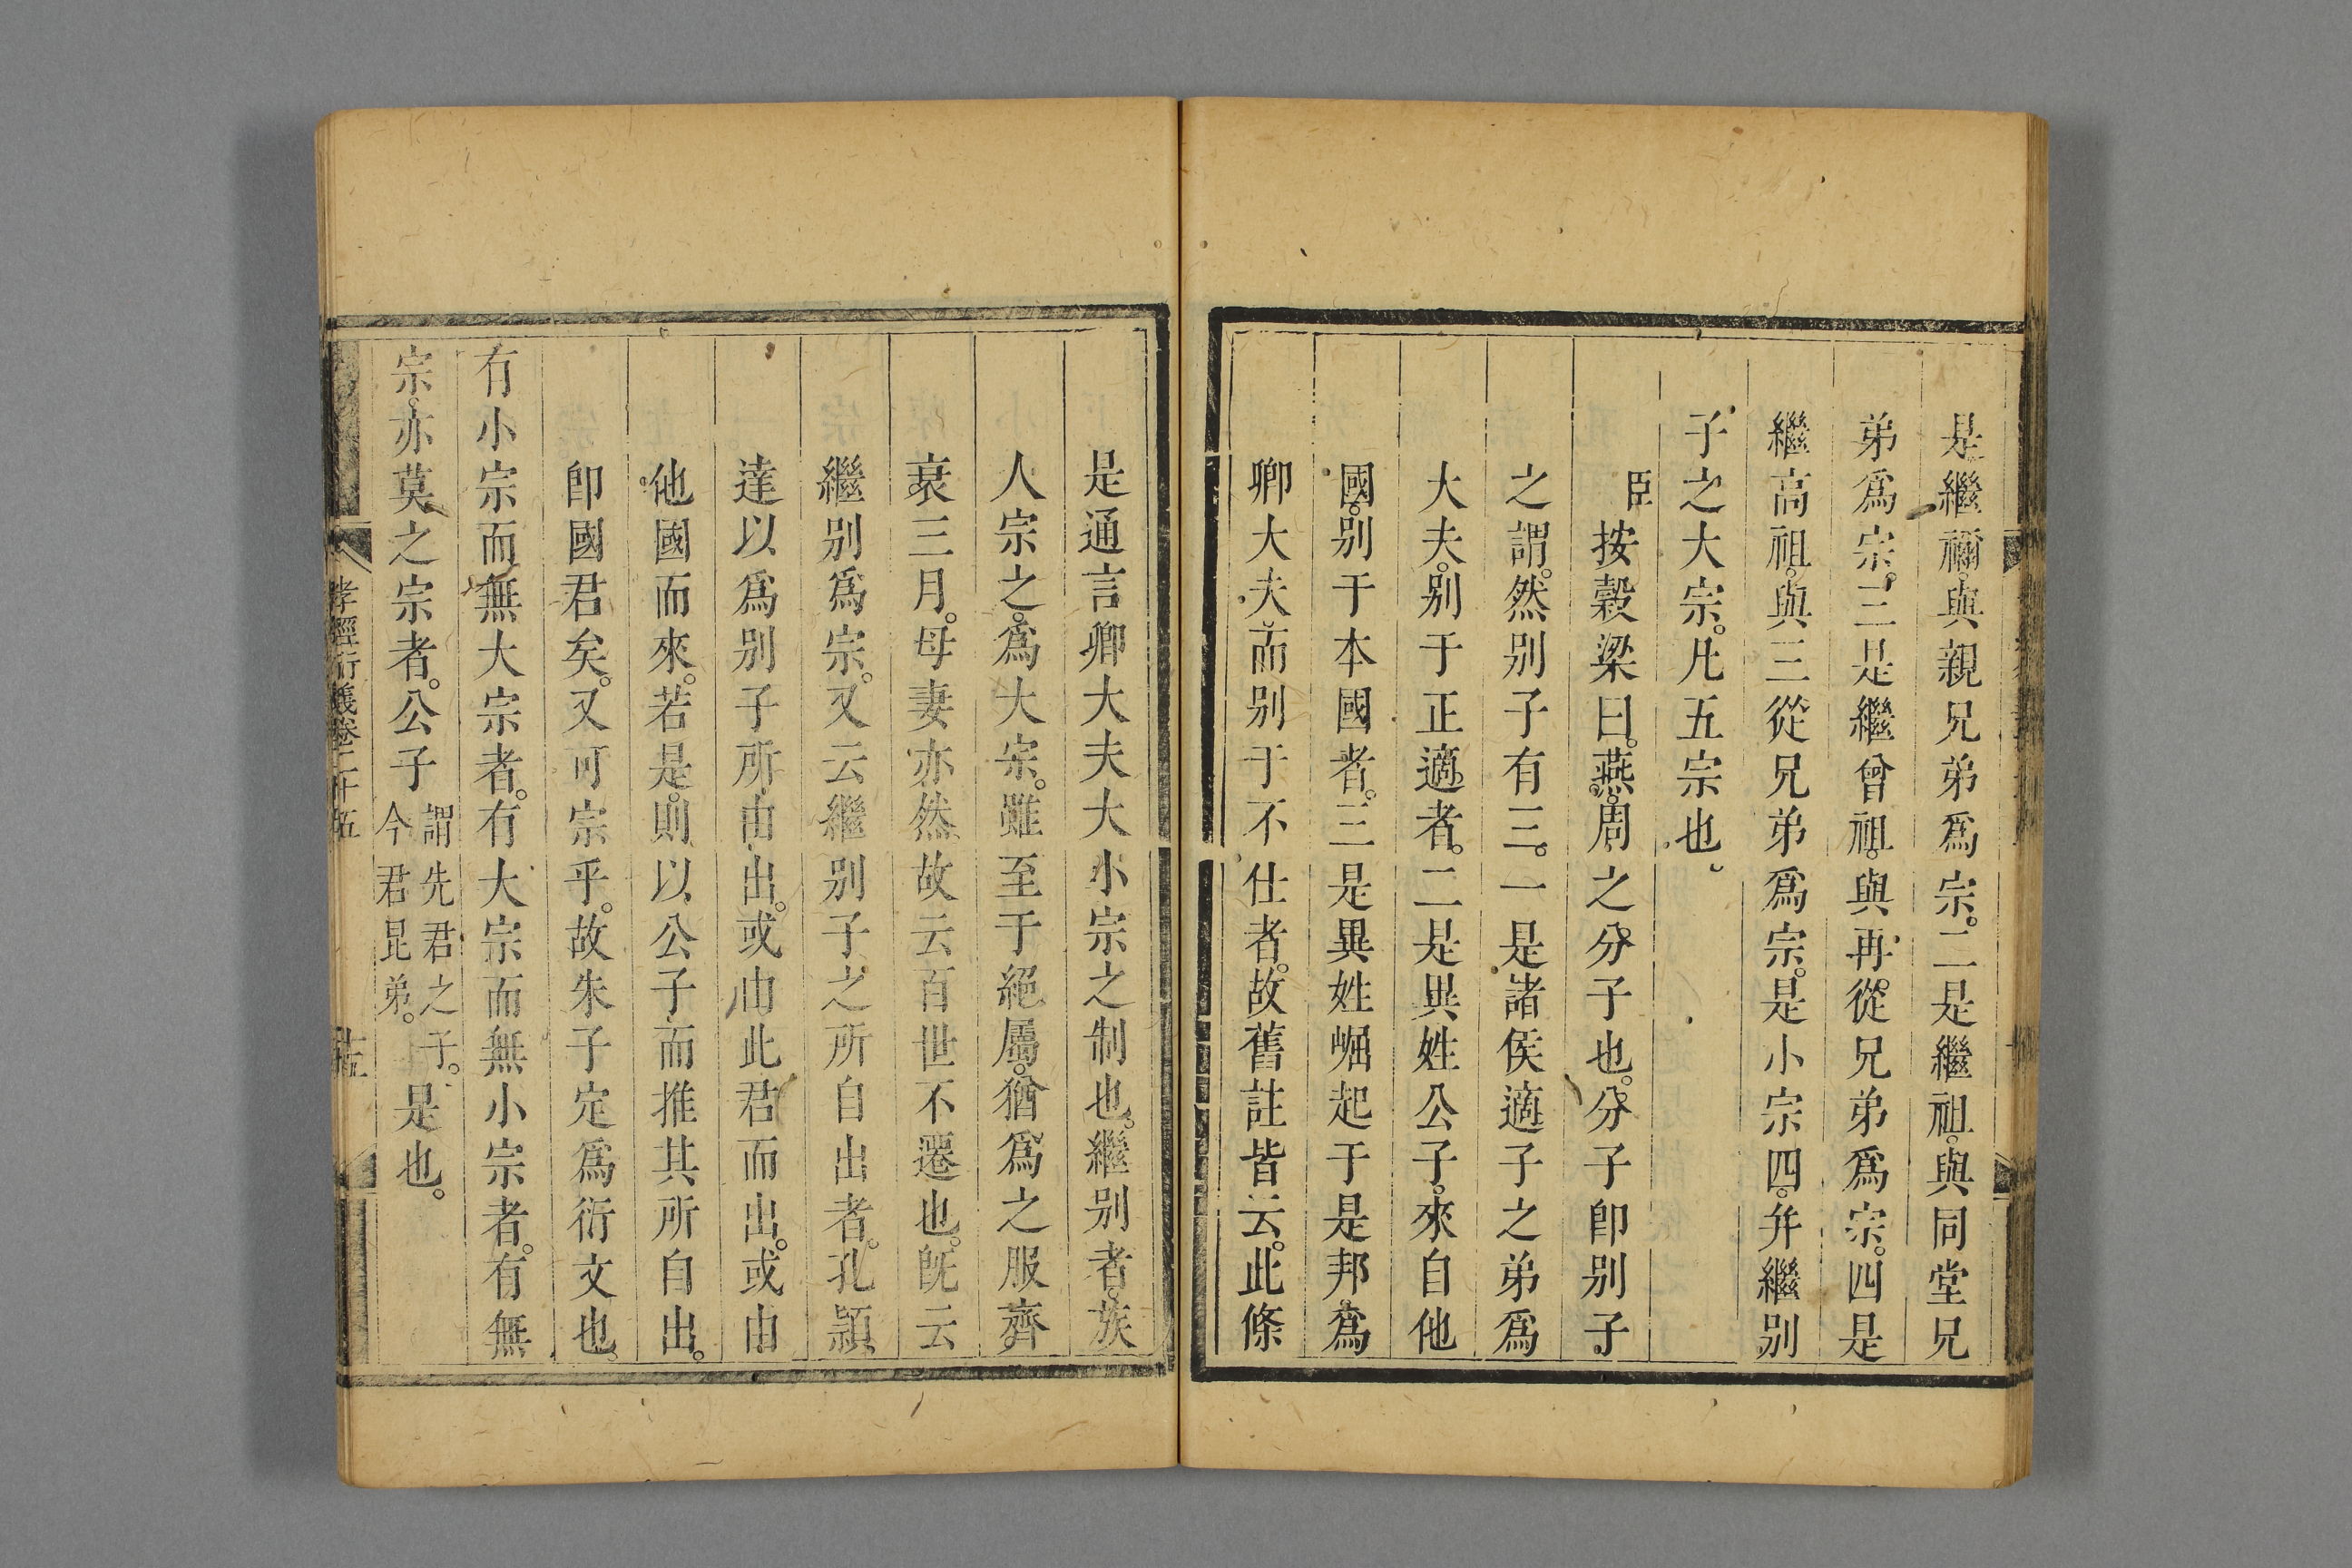 是繼禰。與親兄弟爲宗。二是繼祖。與同堂兄
弟爲宗。三是繼曾祖。與再從兄弟爲宗。四是
繼高祖。與三從兄弟爲宗。是小宗四。并繼别
子之大宗。凡五宗也。
臣按榖梁曰。燕。周之分子也。分子卽别子
之謂。然别子有三。一是諸侯適子之弟爲
大夫。别于正適者。二是異姓公子。來自他
國。别于本國者。三是異姓崛起于是邦。爲
卿大夫。而别于不仕者。故舊註皆云。此條
是通言卿大夫大小宗之制也。繼别者。族
人宗之。爲大宗。雖至于絕屬。猶爲之服齊
衰三月。母妻亦然。故云百世不遷也。旣云
繼别爲宗。又云繼别子之所自出者。孔頴
達以爲别子所由出。或由此君而出。或由
他國而來。若是。則以公子而推其所自出。
卽國君矣。又可宗乎。故朱子定爲衍文也。
有小宗而無大宗者。有大宗而無小宗者。有無
宗。亦莫之宗者。公子謂先君之子。今君昆弟。是也。
孝經衍義卷二十五